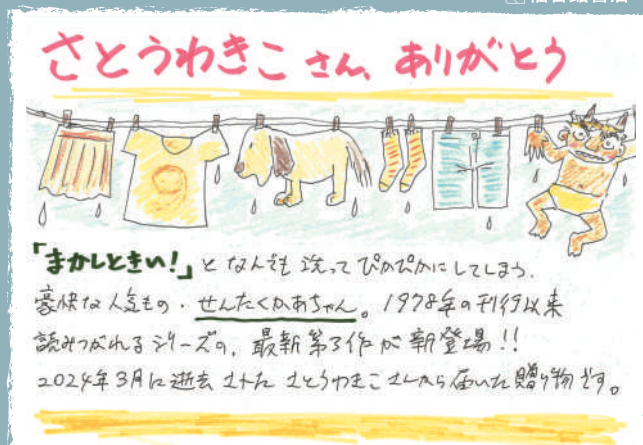 さとうわきこ さん、ありがとう
9
「まかしときい!」となんでも洗ってぴかぴかにしてしまう、
豪快な人気もの・せんたくかあちゃん。1978年の刊行以来
読みつがれるシリーズの、最新第3作が新登場!!
2024年3月に逝去された さとうわきこさんから届いた贈り物です。